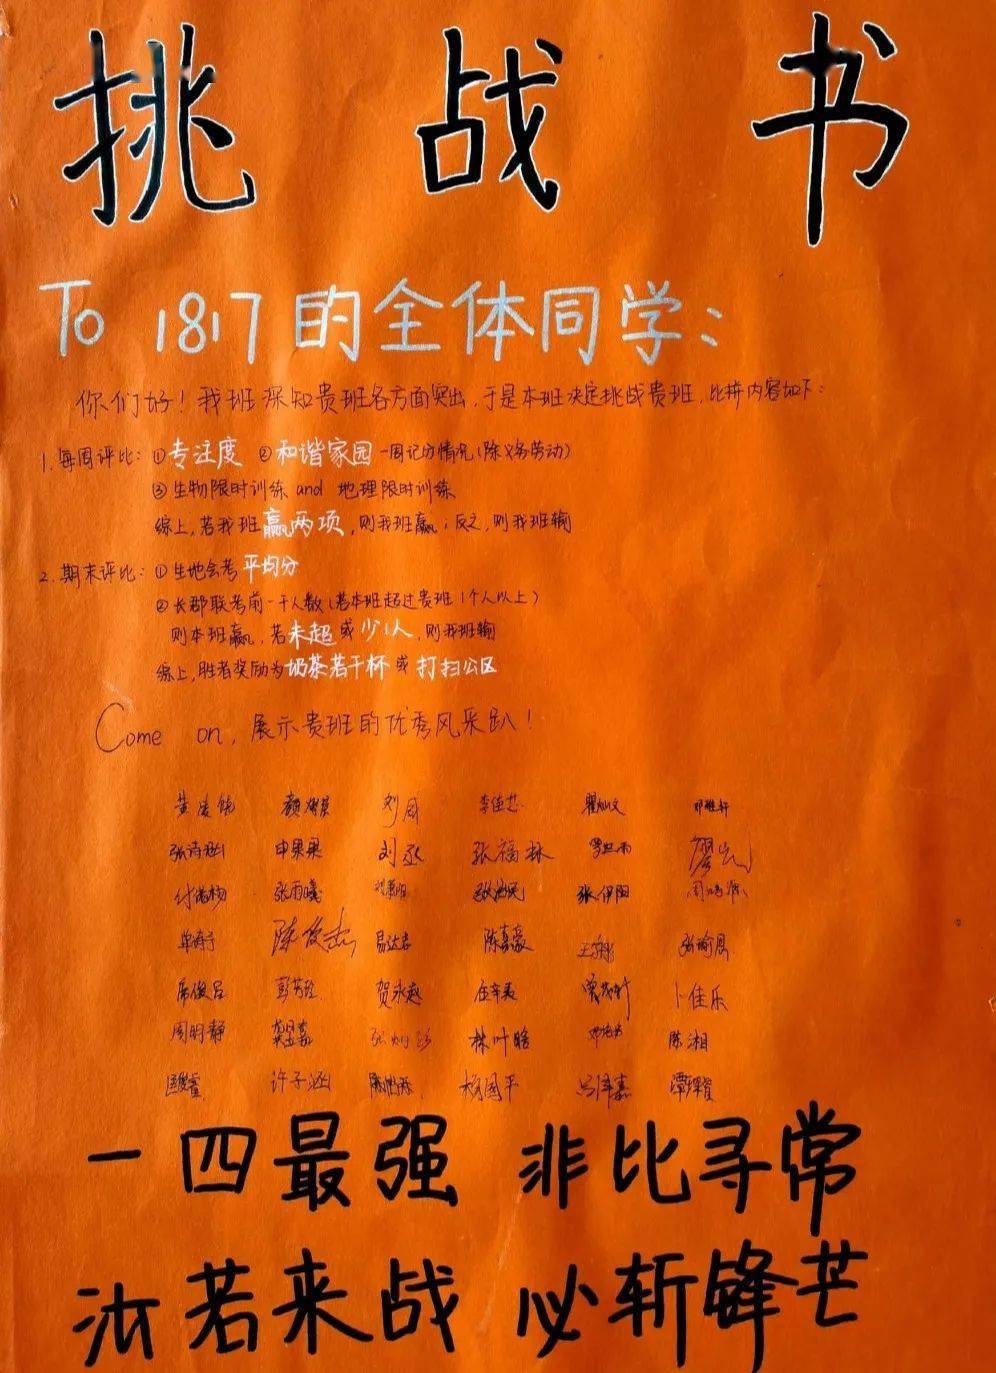 挑战书
To 1817的全体同学：
你们好！我班深知贵班各方面突出，于是本班决定挑战贵班，比拼内容如下：
1. 每周评比：①专注度 ②和谐家园一周记分情况（除义务劳动）
③生物限时训练 and 地理限时训练
综上，若我班赢两项，则我班赢；反之，则我班输
2. 期末评比：①生地会考平均分
②长郡联考前一千人数（若本班超过贵班1个人以上）
则本班赢，若未超或少1人，则我班输
综上，胜者奖励为奶茶若干杯或打扫公区
Come on，展示贵班的优秀风采趴！
刘同 李佳芯
张诗琪 申果果 刘丞 张福林 廖
张雨曦 张伊阳
陈俊杰 易达志 陈嘉豪 张瑜恩
席俊吕 贺永越 卜佳乐
周明静 林叶晗 陈湘
许子涵 杨国平
一四最强 非比寻常
汝若来战 必斩锋芒